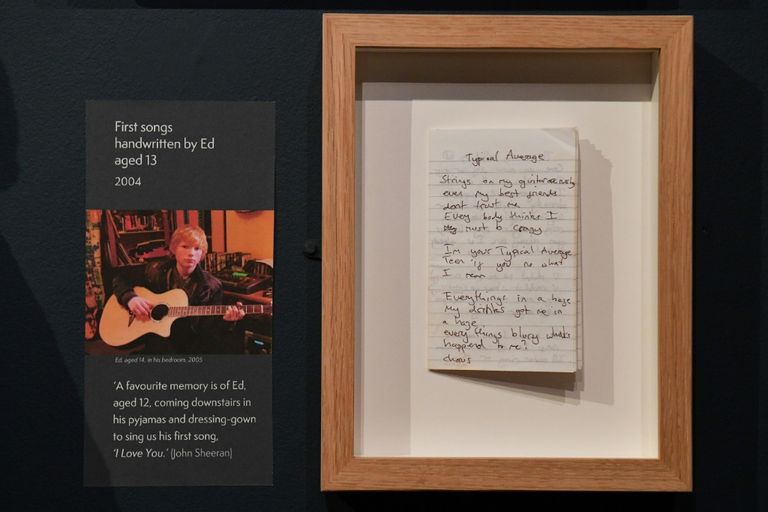 First songs
handwritten by Ed
aged 13
2004
Ed, aged 14, in his bedroom, 2005
‘A favourite memory is of Ed,
aged 12, coming downstairs in
his pyjamas and dressing-gown
to sing us his first song,
‘I Love You.’ (John Sheeran)
Typical Average
Strings on my guitar
even my best friends
dont trust me
Every body thinks I
must b crazy
I'm your Typical Average
Teen if you no what
I mean
Everythings in a haze
My drinks got me in
a haze
everythings blury whats
happend to me?
chorus